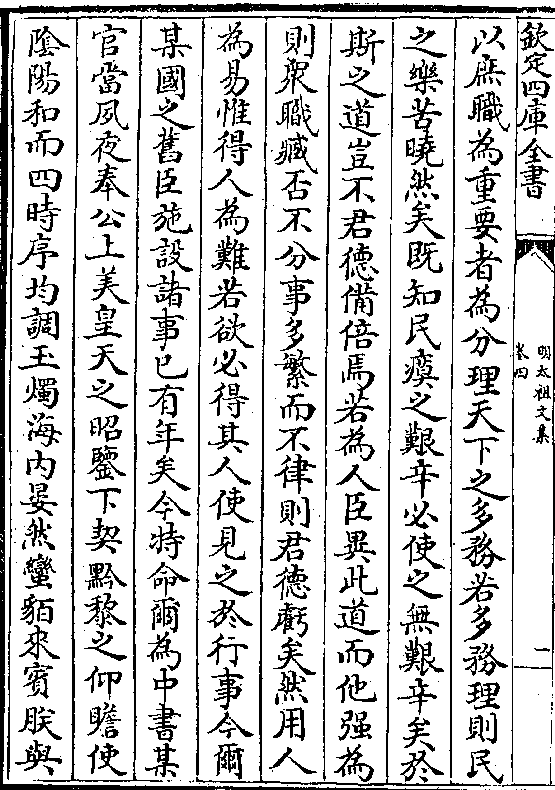 欽定四庫全書
明太祖文集
卷四
二
以庶職為重要者為分理天下之多務若多務理則民
之樂苦曉然矣既知民瘼之艱辛必使之無艱辛矣於
斯之道豈不君德備倍焉若為人臣異此道而他强為
則衆職臧否不分事多繁而不律則君德虧矣然用人
為易惟得人為難若欲必得其人使見之於行事今爾
某國之舊臣施設諸事已有年矣今特命爾為中書某
官當夙夜奉公上美皇天之昭鑒下契黔黎之仰瞻使
陰陽和而四時序均調玉燭海内晏然蠻貊來賓朕與